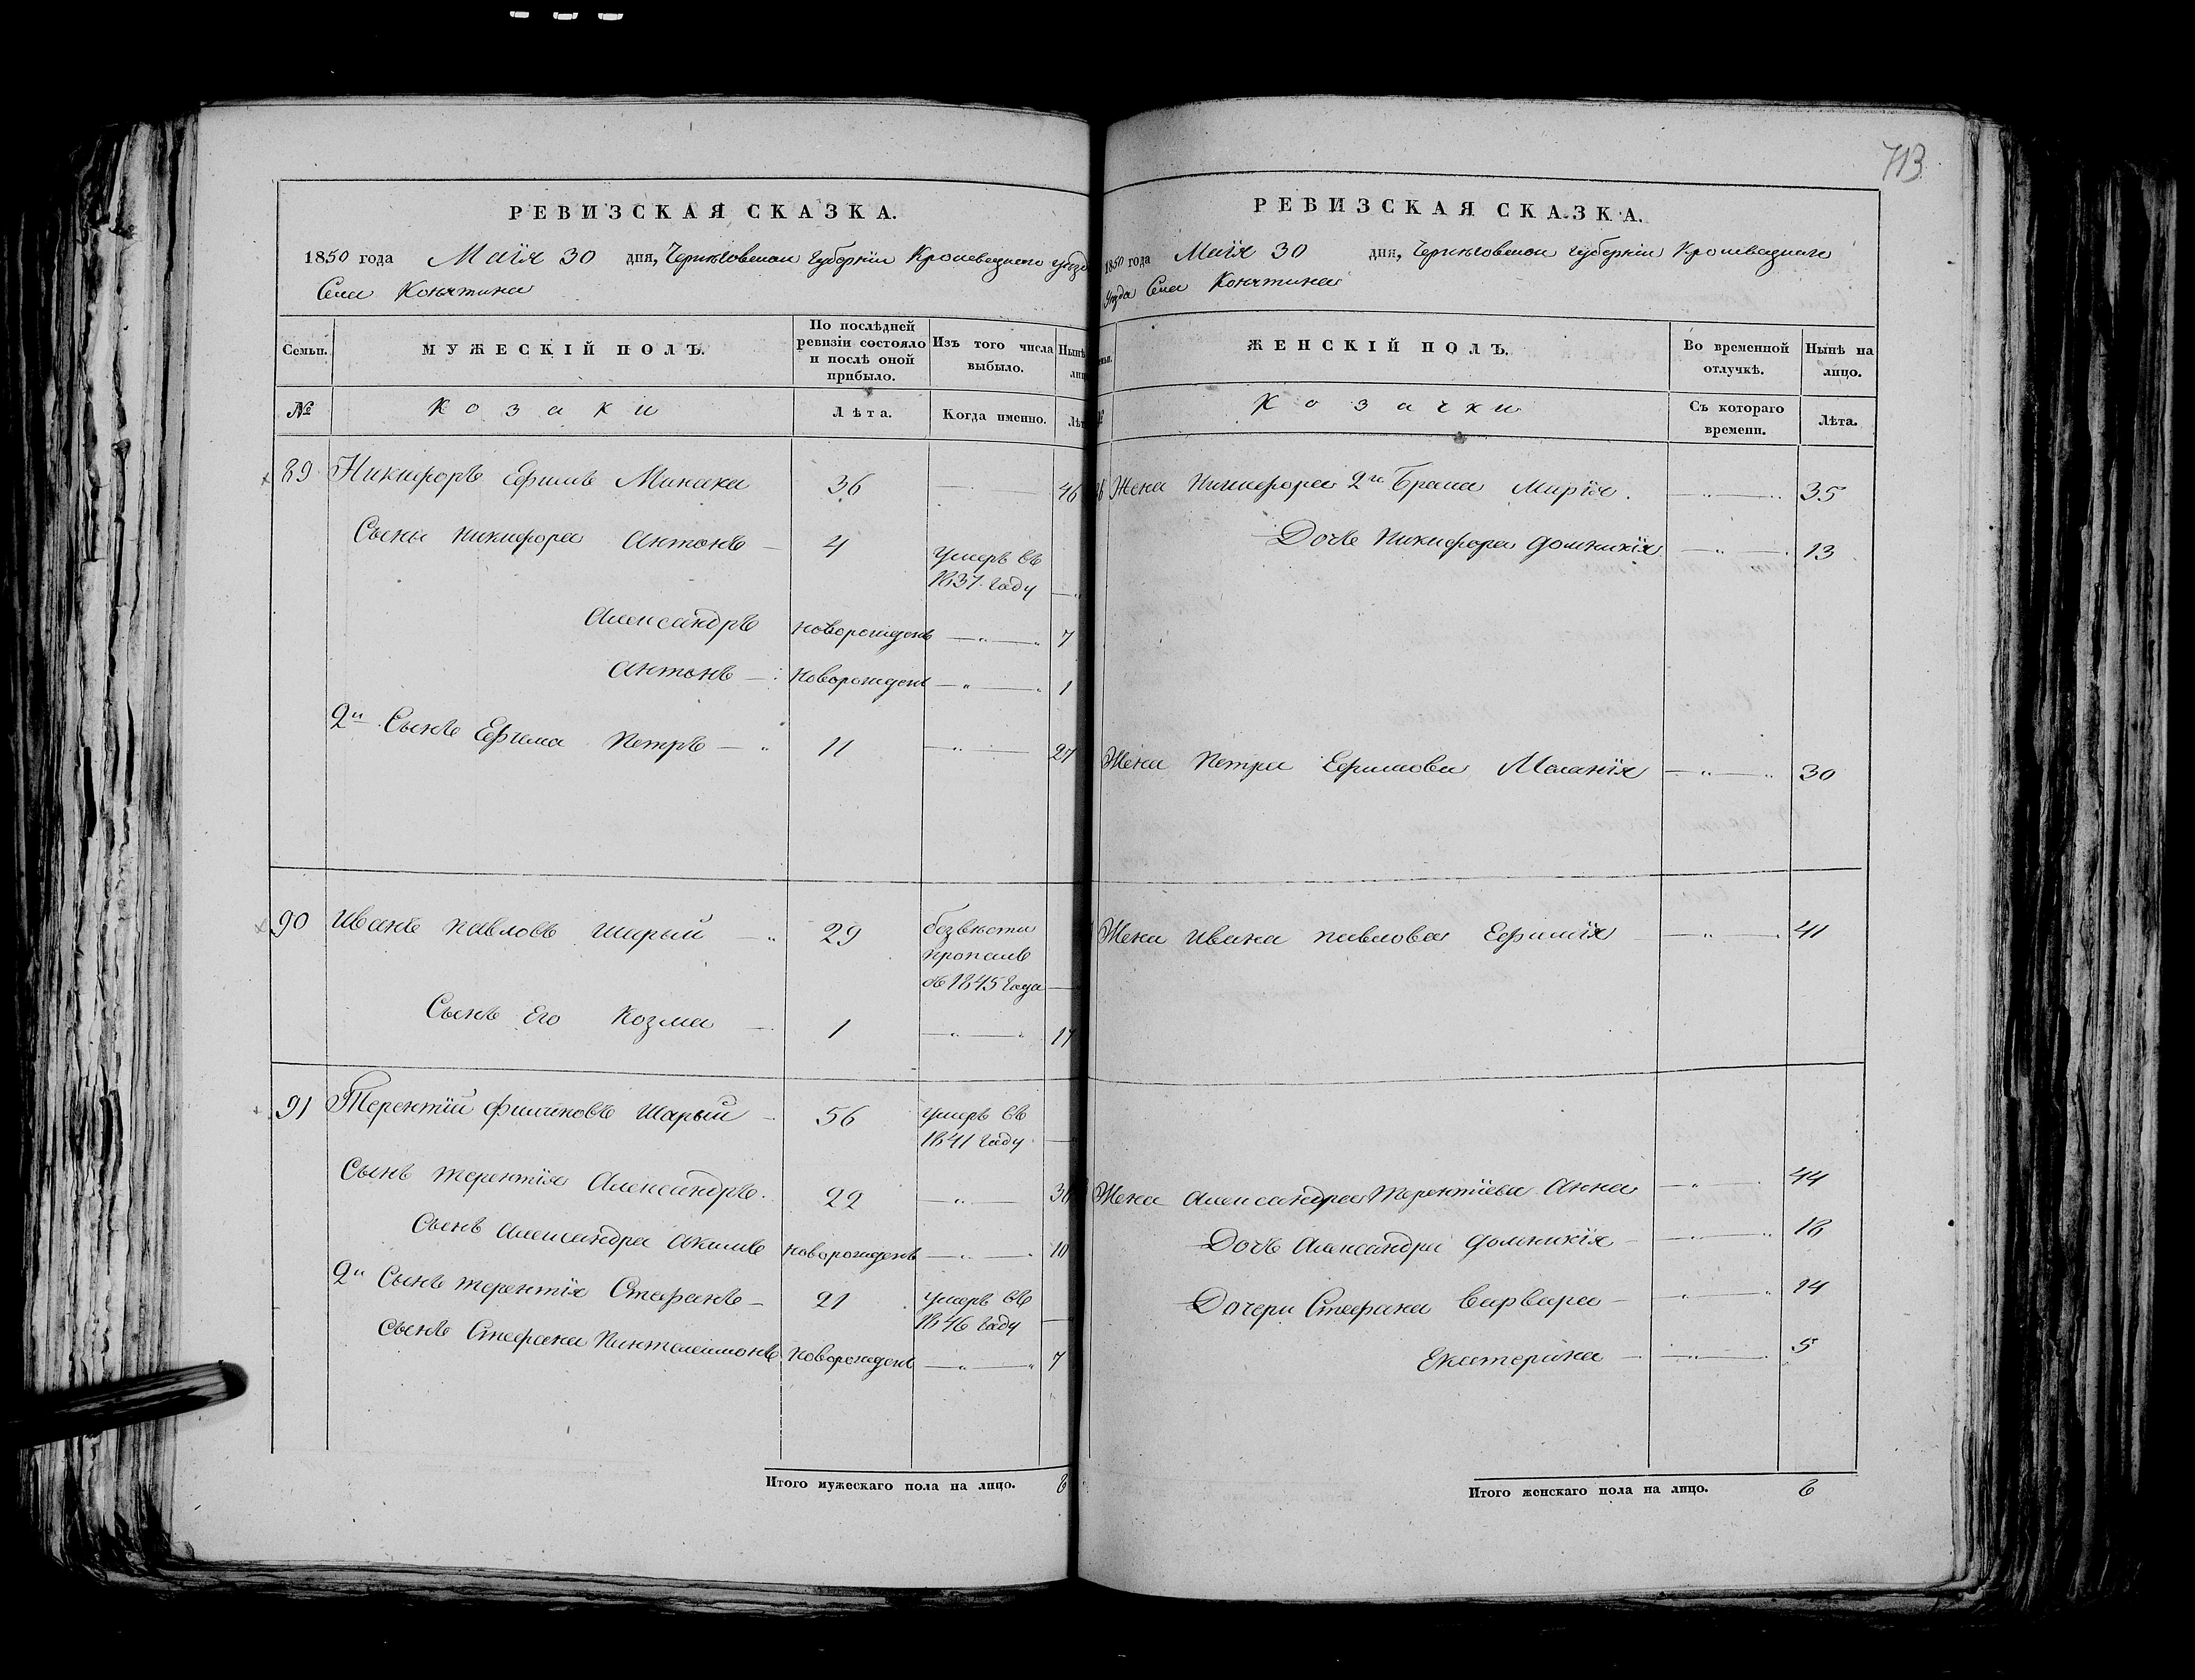 713
РЕВИЗСКАЯ СКАЗКА.
1850 года Маія 30 дня, Черниговской Губерніи Кролевецкаго уѣзда
Села Конятина
Семьи.
МУЖЕСКІЙ ПОЛЪ.
По послѣдней
ревизіи состояло
и послѣ оной
прибыло.
Изъ того числа
выбыло.
Нынѣ
лицо
№
Козаки
Лѣта.
Когда именно.
Лѣт
89 Никифоръ Ефимовъ Минака 36 46
Сыны Никифора Антонъ 4 Умеръ въ
1837 году
Александръ новорожденъ 7
Антонъ новорожденъ 1
2й Сынъ Ефима Петръ 11 27
90 Иванъ Павловъ Шарый 29 безвѣсти
пропалъ
съ 1845 года
Сынъ Его Козма 1 17
91 Терентій Филиповъ Шарый 56 умеръ въ
1841 году
Сынъ Терентія Александръ 22 38
Сынъ Александра Акимъ новорожденъ 10
2й Сынъ Терентія Стефанъ 21 умеръ въ
1846 году
Сынъ Стефана Пантелеимонъ новорожденъ 7
Итого мужескаго пола на лицо. 8
РЕВИЗСКАЯ СКАЗКА.
1850 года Маія 30 дня, Черниговской Губерніи Кролевецкаго
Уѣзда Села Конятина
ЖЕНСКІЙ ПОЛЪ.
Во временной
отлучкѣ.
Нынѣ на
лицо.
Козачки
Съ котораго
времени.
Лѣта.
Жена Никифора 2го Брака Марія 35
Дочь Никифора Домникія 13
Жена Петра Ефимова Меланія 30
Жена Ивана Павлова Ефимія 41
Жена Александра Терентіева Анна 44
Дочь Александра Домникія 18
Дочери Стефана Варвара 14
Екатерина 5
Итого женскаго пола на лицо. 8